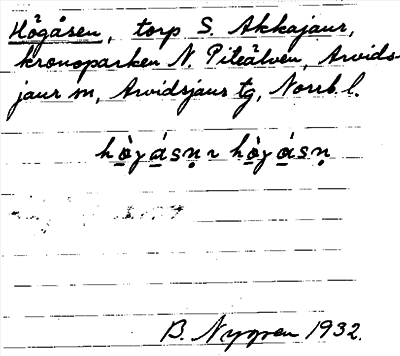 Högåsen, torp S. Akkajaur,
kronoparken N. Piteälven, Arvids-
jaur sn, Arvidsjaur tg, Norrb. l.
B. Nygren 1932.